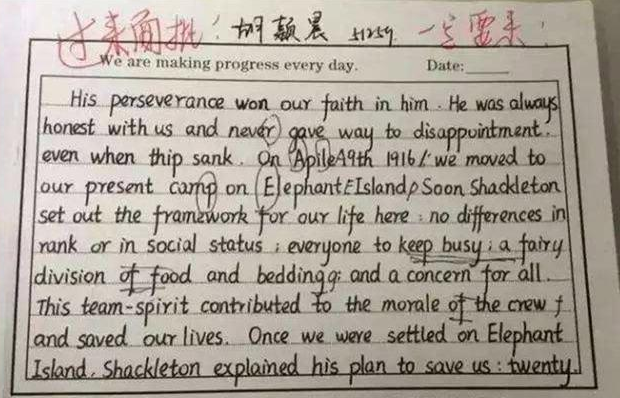 过来面批! 胡颖晨 51259 一定要来!
We are making progress every day. Date:
His perseverance won our faith in him. He was always
honest with us and never gave way to disappointment.
even when thip sank. On Apile A9th 1916 / we moved to
our present camp on Elephant E Island, Soon Shackleton
set out the framework for our life here : no differences in
rank or in social status ; everyone to keep busy ; a fairy
division of food and bedding ; and a concern for all.
This team-spirit contributed to the morale of the crew
and saved our lives. Once we were settled on Elephant
Island. Shackleton explained his plan to save us : twenty